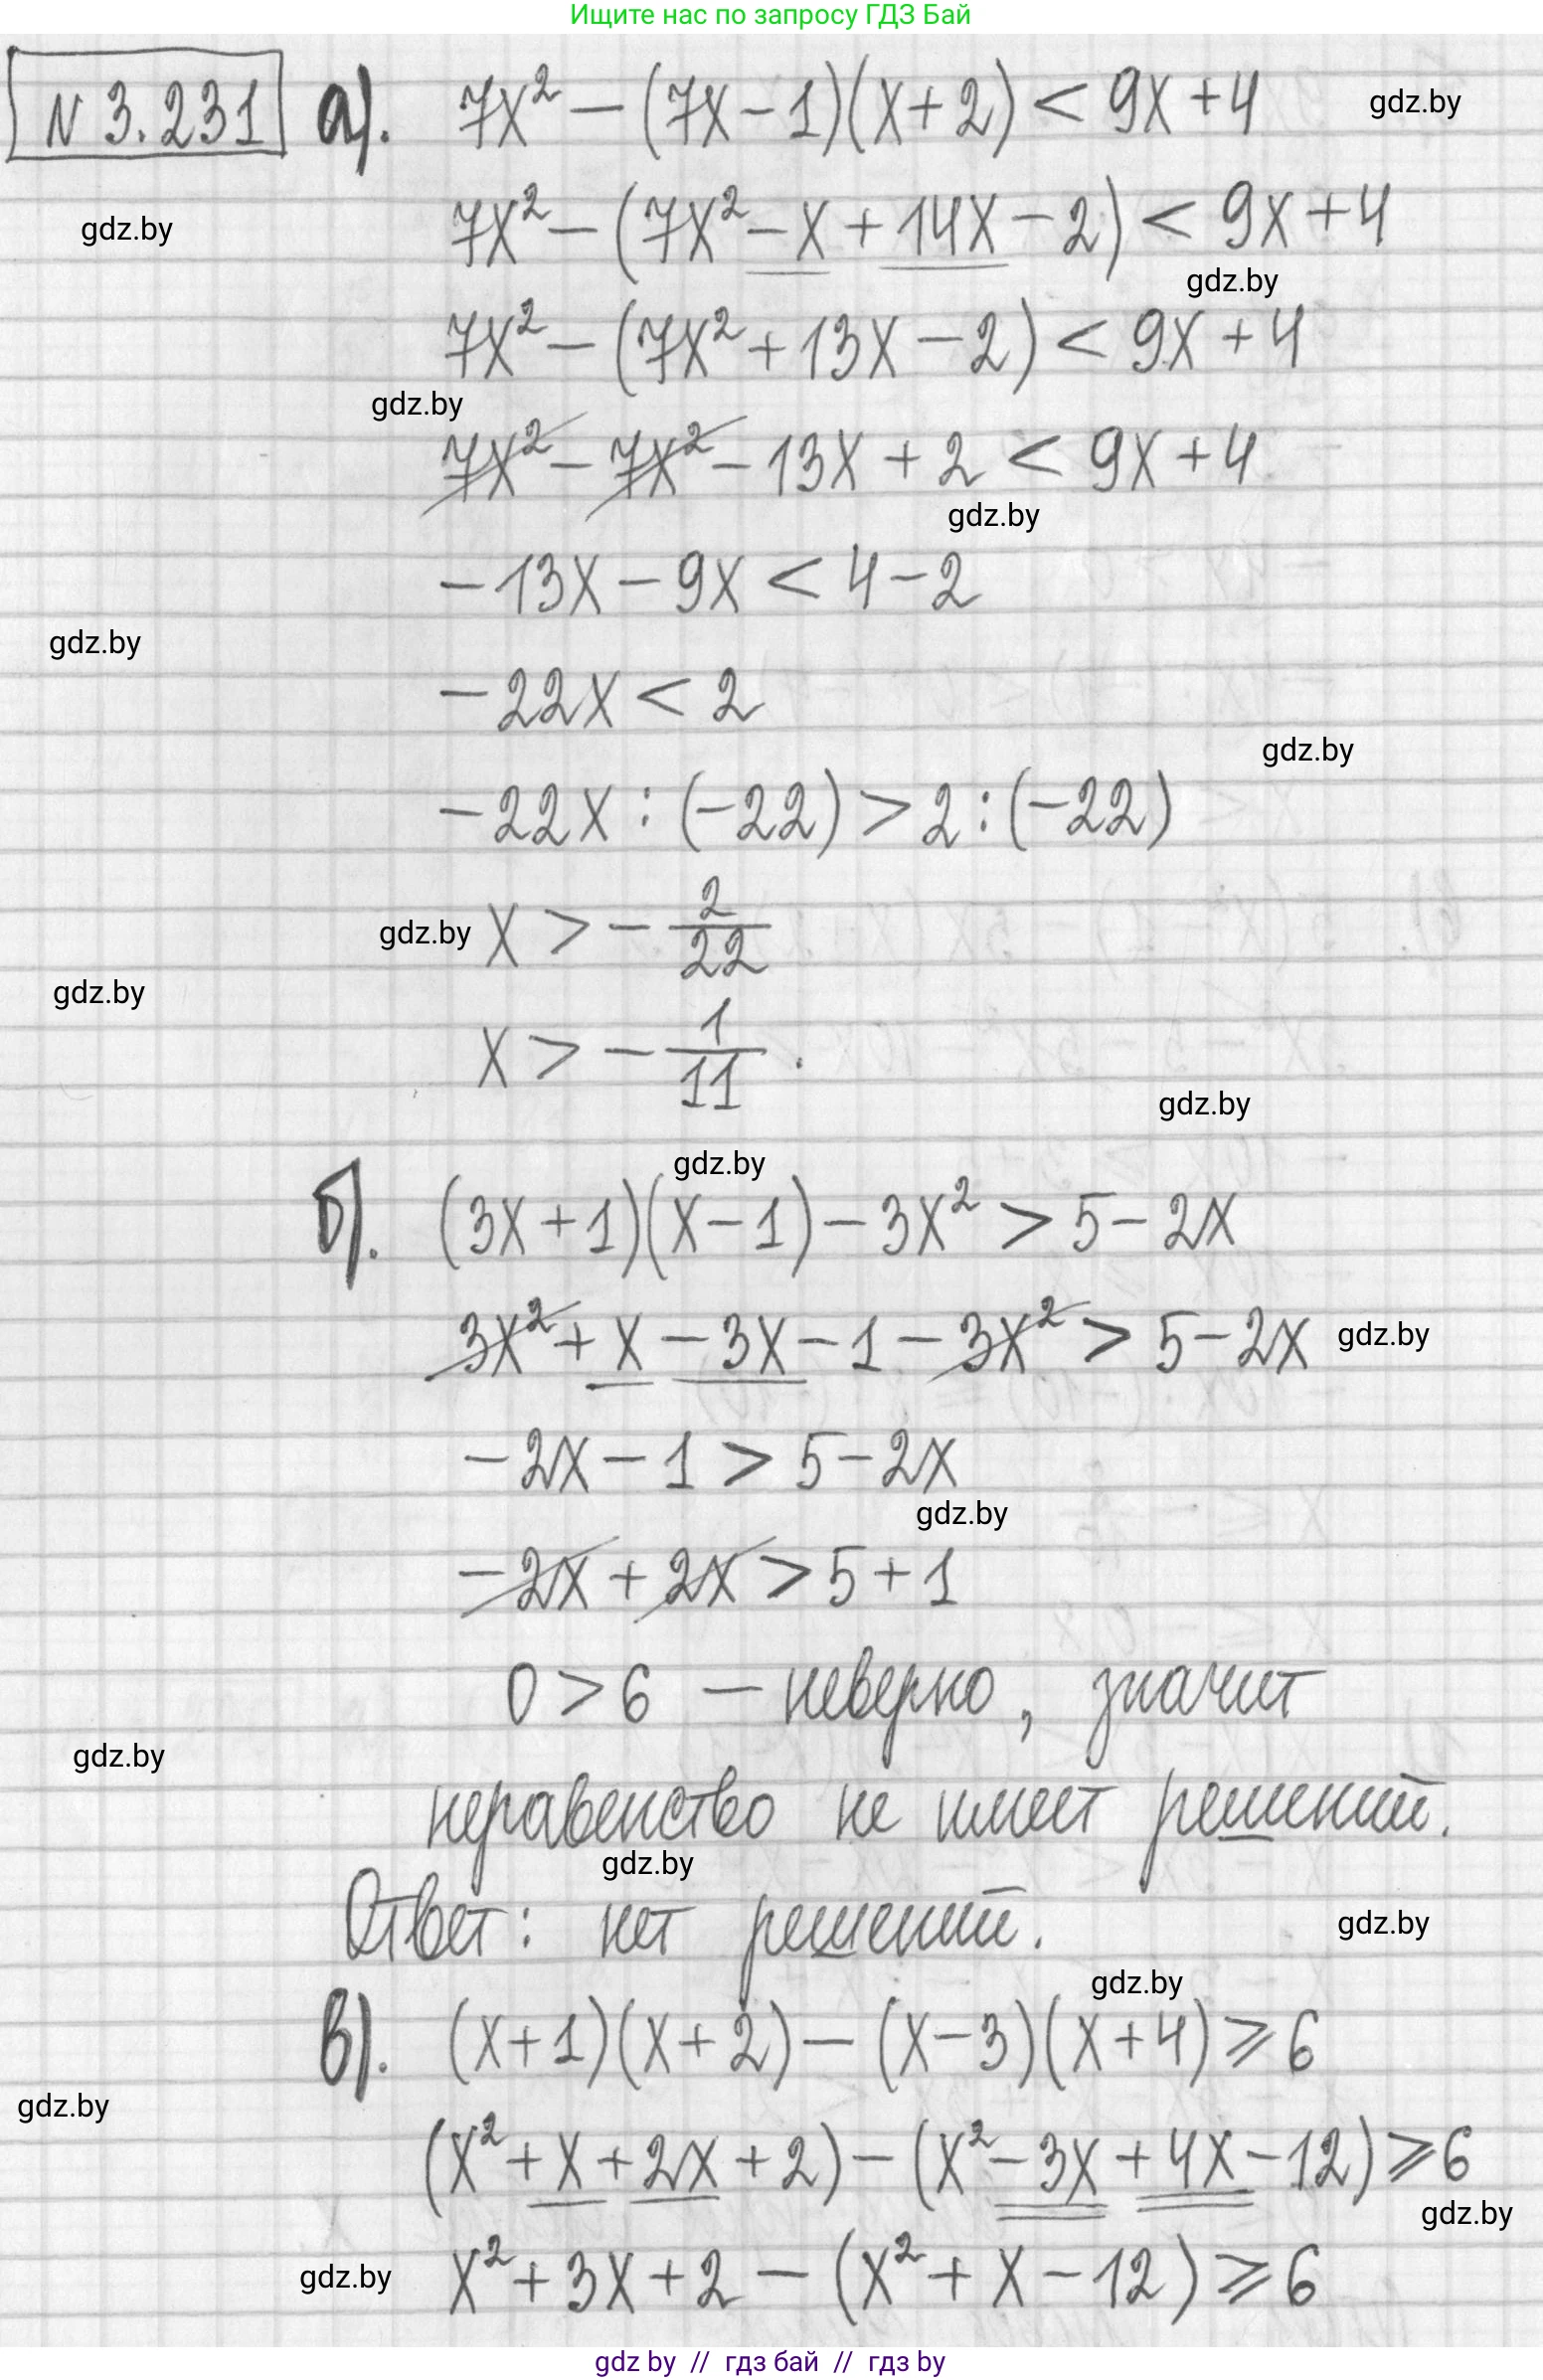 Ищите нас по запросу ГДЗ Бай
N 3.231 а). 7x² − (7x − 1)(x + 2) < 9x + 4
gdz.by
gdz.by
7x² − (7x² − x + 14x − 2) < 9x + 4
gdz.by
7x² − (7x² + 13x − 2) < 9x + 4
gdz.by
7x² − 7x² − 13x + 2 < 9x + 4
gdz.by
−13x − 9x < 4 − 2
gdz.by
−22x < 2
gdz.by
−22x : (−22) > 2 : (−22)
gdz.by
x > − 2/22
gdz.by
x > − 1/11 .
gdz.by
gdz.by
б). (3x + 1)(x − 1) − 3x² > 5 − 2x
3x² + x − 3x − 1 − 3x² > 5 − 2x
gdz.by
−2x − 1 > 5 − 2x
gdz.by
−2x + 2x > 5 + 1
0 > 6 — неверно, значит
gdz.by
неравенство не имеет решений.
gdz.by
Ответ: нет решений.
gdz.by
gdz.by
в). (x + 1)(x + 2) − (x − 3)(x + 4) ⩾ 6
gdz.by
(x² + x + 2x + 2) − (x² − 3x + 4x − 12) ⩾ 6
gdz.by
gdz.by
x² + 3x + 2 − (x² + x − 12) ⩾ 6
gdz by // гдз бай // гдз by